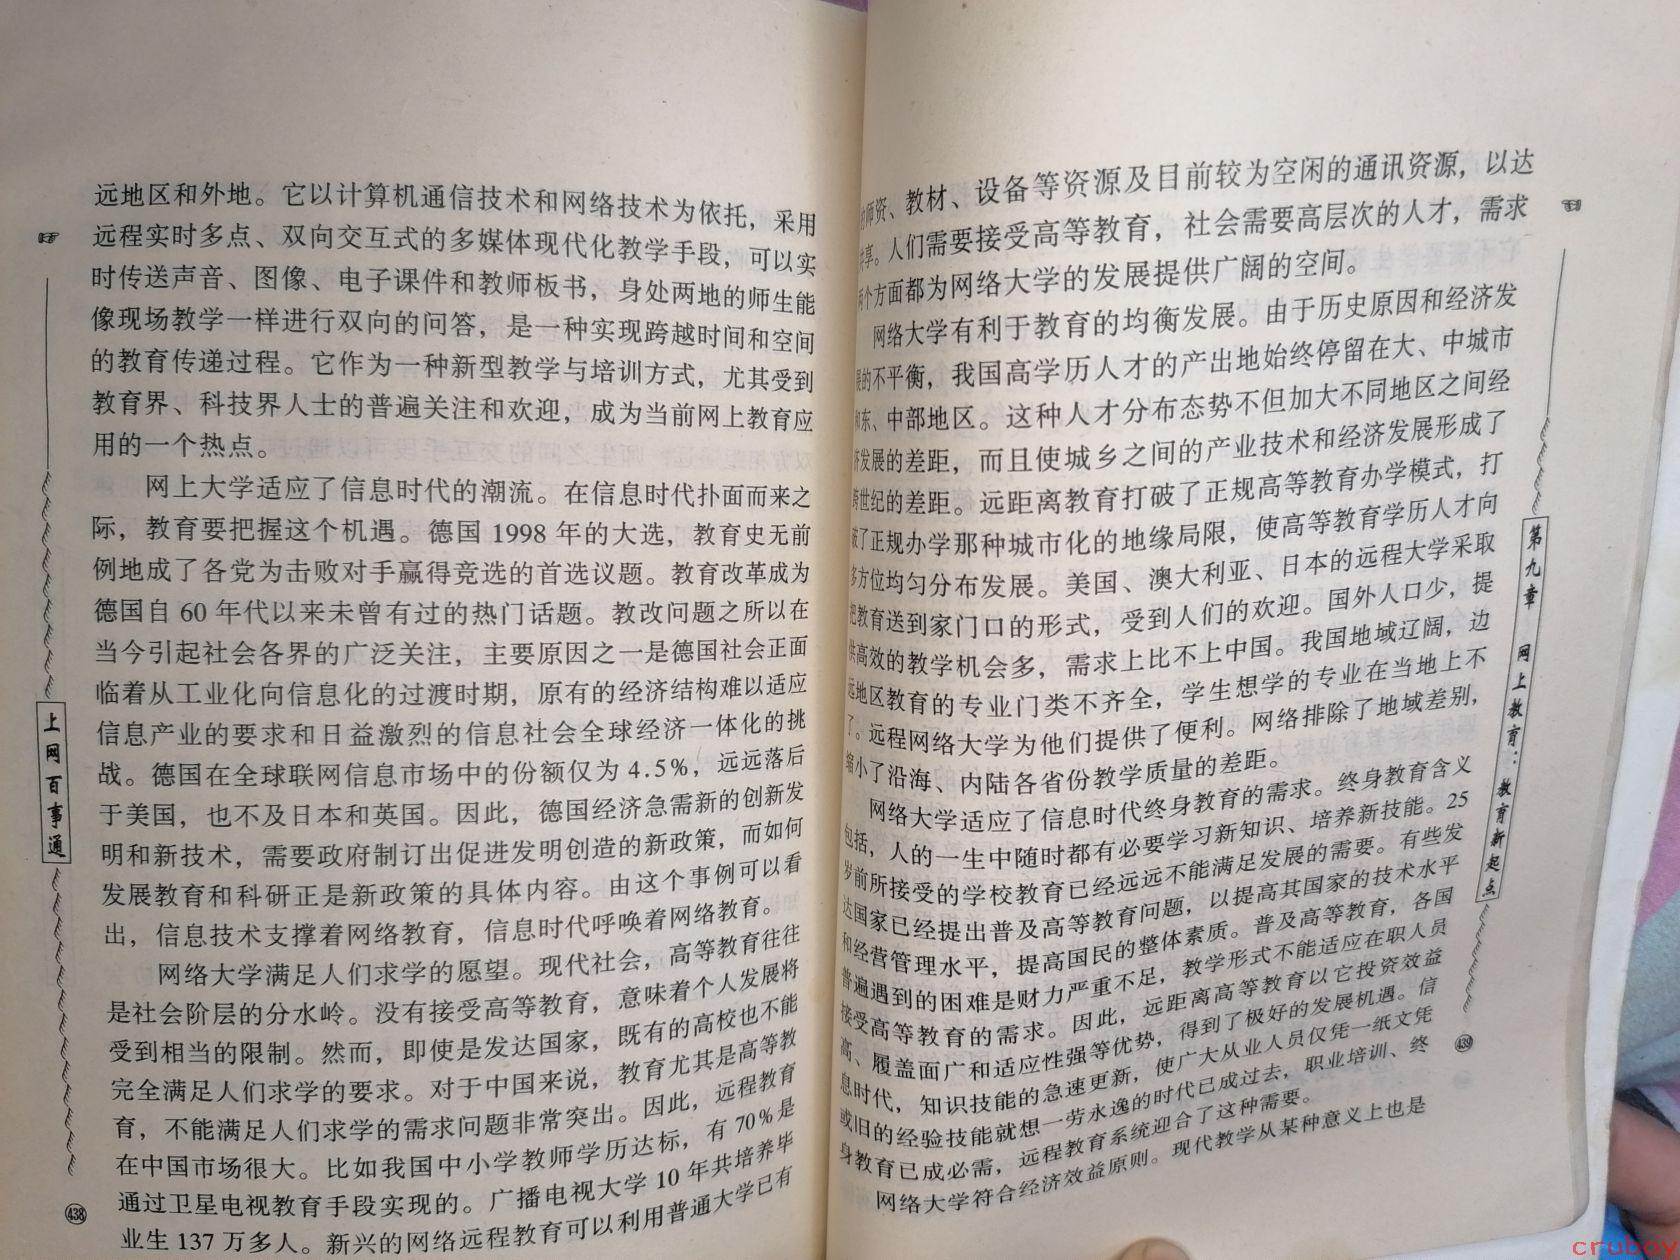 远地区和外地。它以计算机通信技术和网络技术为依托，采用
远程实时多点、双向交互式的多媒体现代化教学手段，可以实
时传送声音、图像、电子课件和教师板书，身处两地的师生能
像现场教学一样进行双向的问答，是一种实现跨越时间和空间
的教育传递过程。它作为一种新型教学与培训方式，尤其受到
教育界、科技界人士的普遍关注和欢迎，成为当前网上教育应
用的一个热点。
网上大学适应了信息时代的潮流。在信息时代扑面而来之
际，教育要把握这个机遇。德国 1998 年的大选，教育史无前
例地成了各党为击败对手赢得竞选的首选议题。教育改革成为
德国自 60 年代以来未曾有过的热门话题。教改问题之所以在
当今引起社会各界的广泛关注，主要原因之一是德国社会正面
临着从工业化向信息化的过渡时期，原有的经济结构难以适应
信息产业的要求和日益激烈的信息社会全球经济一体化的挑
战。德国在全球联网信息市场中的份额仅为 4.5%，远远落后
于美国，也不及日本和英国。因此，德国经济急需新的创新发
明和新技术，需要政府制订出促进发明创造的新政策，而如何
发展教育和科研正是新政策的具体内容。由这个事例可以看
出，信息技术支撑着网络教育，信息时代呼唤着网络教育。
网络大学满足人们求学的愿望。现代社会，高等教育往往
是社会阶层的分水岭。没有接受高等教育，意味着个人发展将
受到相当的限制。然而，即使是发达国家，既有的高校也不能
完全满足人们求学的要求。对于中国来说，教育尤其是高等教
育，不能满足人们求学的需求问题非常突出。因此，远程教育
在中国市场很大。比如我国中小学教师学历达标，有 70%是
通过卫星电视教育手段实现的。广播电视大学 10 年共培养毕
业生 137 万多人。新兴的网络远程教育可以利用普通大学已有
上网百事通
438
师资、教材、设备等资源及目前较为空闲的通讯资源，以达
共享。人们需要接受高等教育，社会需要高层次的人才，需求
两个方面都为网络大学的发展提供广阔的空间。
网络大学有利于教育的均衡发展。由于历史原因和经济发
展的不平衡，我国高学历人才的产出地始终停留在大、中城市
和东、中部地区。这种人才分布态势不但加大不同地区之间经
济发展的差距，而且使城乡之间的产业技术和经济发展形成了
跨世纪的差距。远距离教育打破了正规高等教育办学模式，打
破了正规办学那种城市化的地缘局限，使高等教育学历人才向
多方位均匀分布发展。美国、澳大利亚、日本的远程大学采取
把教育送到家门口的形式，受到人们的欢迎。国外人口少，提
供高效的教学机会多，需求上比不上中国。我国地域辽阔，边
远地区教育的专业门类不齐全，学生想学的专业在当地上不
了。远程网络大学为他们提供了便利。网络排除了地域差别，
缩小了沿海、内陆各省份教学质量的差距。
网络大学适应了信息时代终身教育的需求。终身教育含义
包括，人的一生中随时都有必要学习新知识、培养新技能。25
岁前所接受的学校教育已经远远不能满足发展的需要。有些发
达国家已经提出普及高等教育问题，以提高其国家的技术水平
和经营管理水平，提高国民的整体素质。普及高等教育，各国
普遍遇到的困难是财力严重不足，教学形式不能适应在职人员
接受高等教育的需求。因此，远距离高等教育以它投资效益
高、履盖面广和适应性强等优势，得到了极好的发展机遇。信
息时代，知识技能的急速更新，使广大从业人员仅凭一纸文凭
或旧的经验技能就想一劳永逸的时代已成过去，职业培训、终
身教育已成必需，远程教育系统迎合了这种需要。
网络大学符合经济效益原则。现代教学从某种意义上也是
第九章 网上教育：教育新起点
439
cruboy